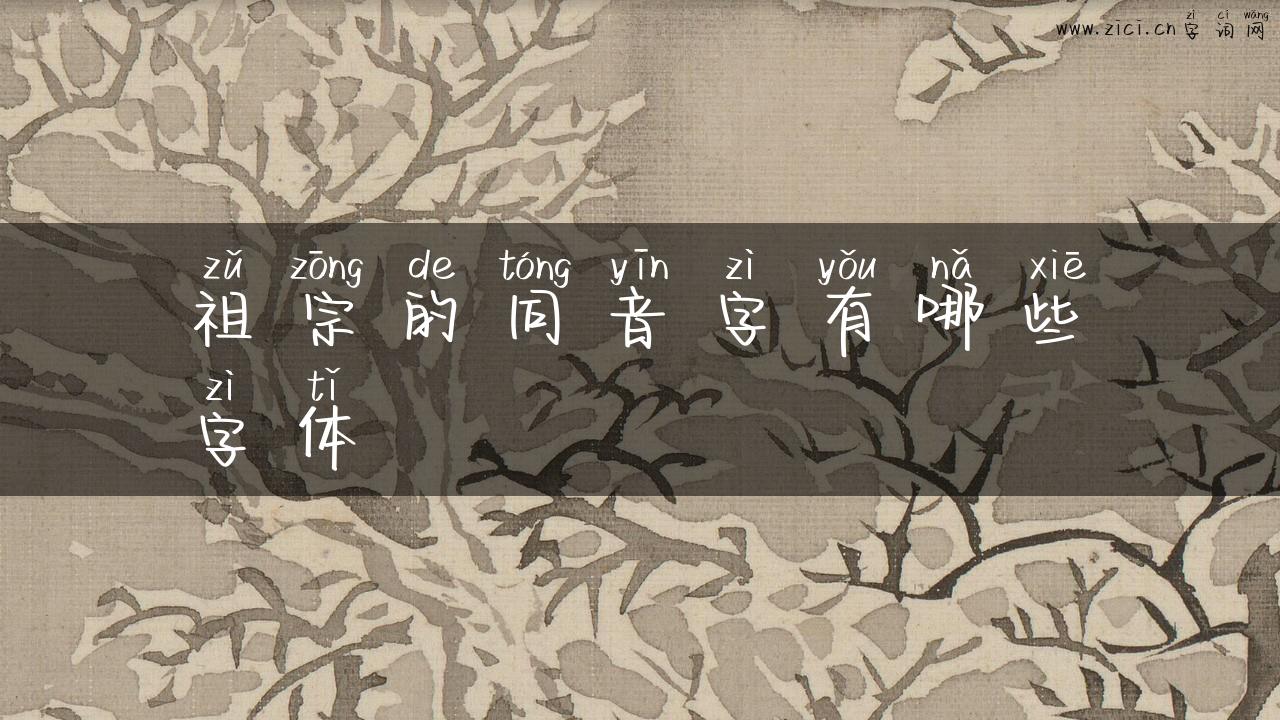 zì cí wǎng
www.zici.cn 字词网
zǔ zōng de tóng yīn zì yǒu nǎ xiē
祖宗的同音字有哪些
zì tǐ
字体